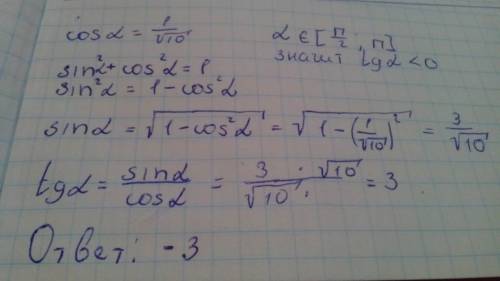 cosα = 1/√10   α ∈ [π/2; π]
значит tgα < 0
sin²α + cos²α = 1
sin²α = 1 - cos²α
sinα = √(1 - cos²α) = √(1 - (1/√10)²) = 3/√10
tgα = sinα/cosα = 3 · √10/√10 · = 3
Ответ: -3